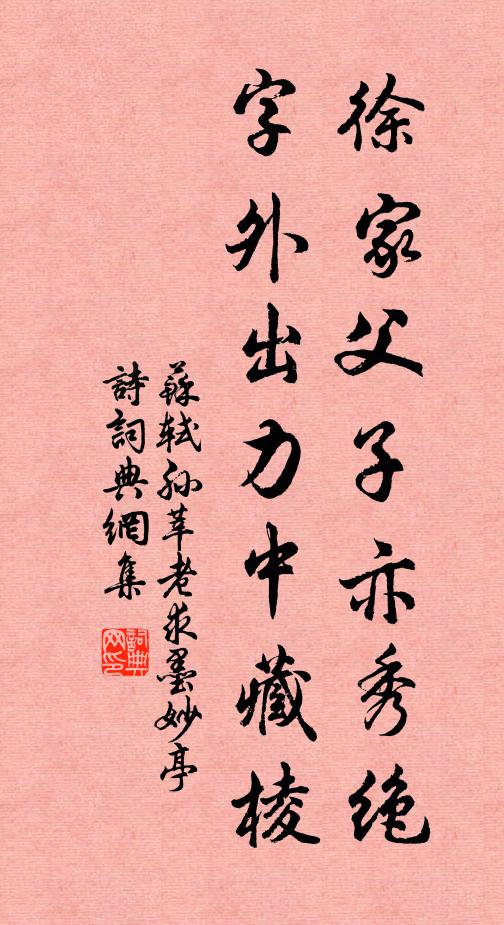 徐家父子亦秀绝
字外出力中藏棱
蘇軾孙莘老求墨妙亭
詩詞典網集
詞典网印